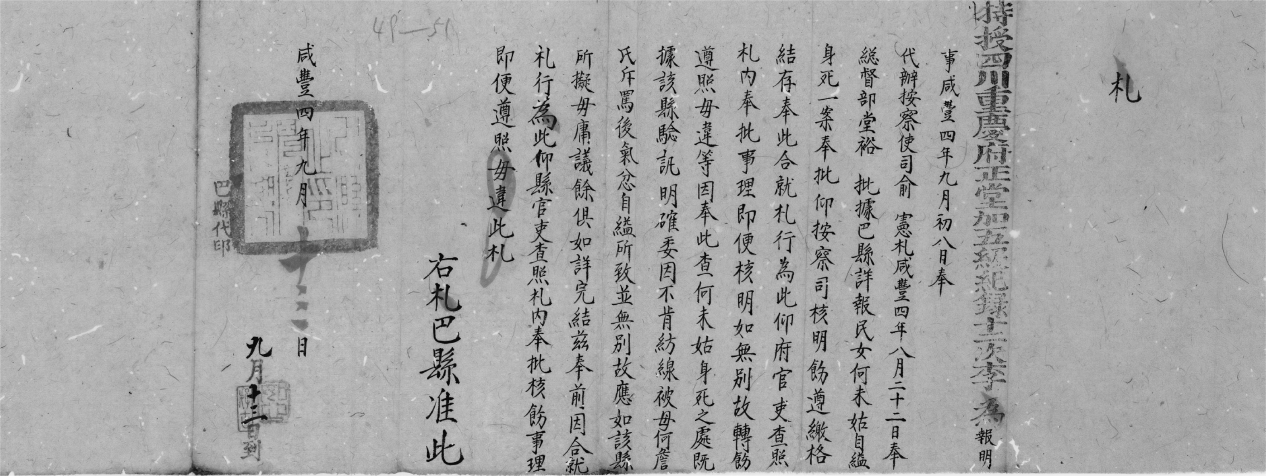 札
特授四川重慶府正堂加五級紀錄十二次李 為 報明
事咸豐四年九月初八日奉
代辦按察使司俞 憲札咸豐四年八月二十二日奉
總督部堂裕 批據巴縣詳報民女何未姑自縊
身死一案奉批仰按察司核明飭遵繳格
結存奉此合就札行為此仰府官吏查照
札內奉批事理即便核明如無別故轉飭
遵照毋違等因奉此查何未姑身死之處既
據該縣驗訊明確委因不肯紡線被母何詹
氏斥罵後氣忿自縊所致並無別故應如該縣
所擬毋庸議餘俱如詳完結茲奉前因合就
札行為此仰縣官吏查照札內奉批核飭事理
即便遵照毋違此札
右札巴縣准此
咸豐四年九月十三日
巴縣代印
九月十三日到
49—51